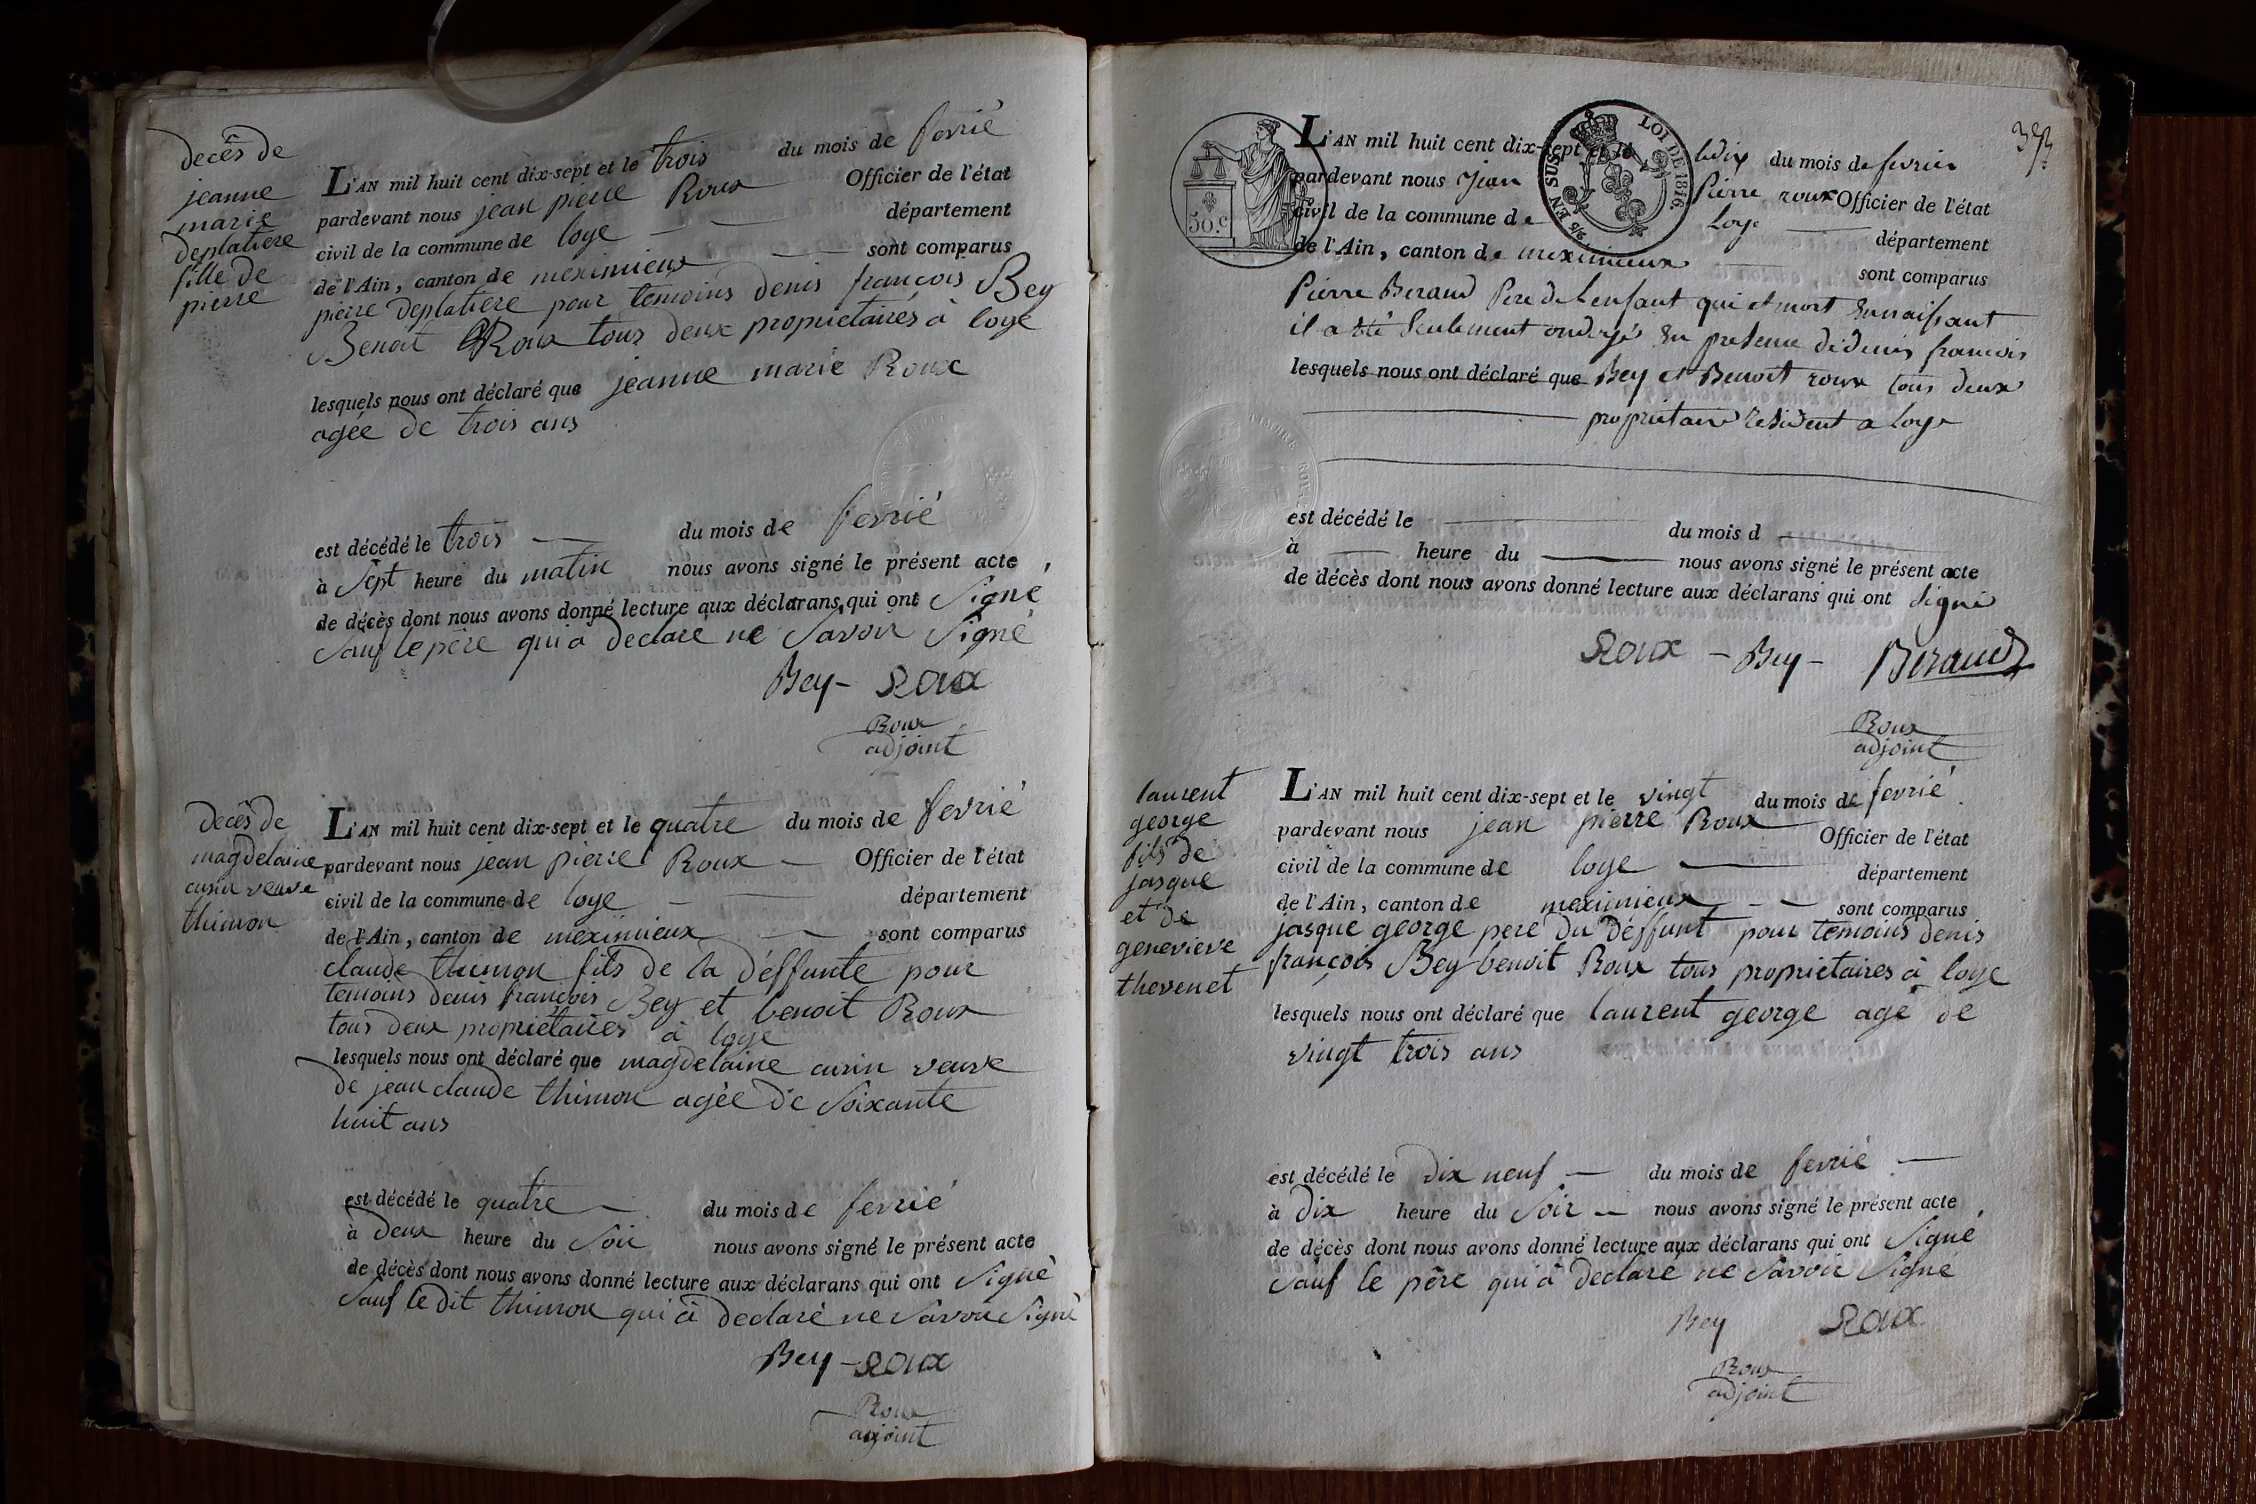 decès de
jeanne
marie
deplatiere
fille de
pierre
L'AN mil huit cent dix-sept et le trois du mois de fevrié
pardevant nous jean pierre Roux Officier de l'état
civil de la commune de loye département
de l'Ain, canton de meximieux sont comparus
pierre deplatiere pour temoins denis françois Bey
Benoit Roux tous deux proprietaires à loye
lesquels nous ont déclaré que jeanne marie Roux
agée de trois ans
est décédé le trois du mois de fevrié
à sept heure du matin nous avons signé le présent acte
de décès dont nous avons donné lecture aux déclarans qui ont signé
sauf le père qui a declaré ne savoir signé
Bey - Roux
Roux
adjoint
decès de
magdelaine
veuve
thimon
L'AN mil huit cent dix-sept et le quatre du mois de fevrié
pardevant nous jean pierre Roux Officier de l'état
civil de la commune de loye département
de l'Ain, canton de meximieux sont comparus
claude thimon fils de la déffunte pour
temoins denis françois Bey et benoit Roux
tous deux proprietaires à loye
lesquels nous ont déclaré que magdelaine veuve
de jean claude thimon agée de soixante
huit ans
est décédé le quatre du mois de fevrié
à deux heure du soir nous avons signé le présent acte
de décès dont nous avons donné lecture aux déclarans qui ont signé
sauf le dit thimon qui à declaré ne savoir signé
Bey - Roux
Roux
adjoint
50.c
EN SUS
LOI DE 1816.
L'AN mil huit cent dix-sept et le ledix du mois de fevrier
pardevant nous Jean Pierre roux Officier de l'état
civil de la commune de Loye département
de l'Ain, canton de meximieux sont comparus
Pierre Beraud Pere de Lenfant qui et mort ennaissant
il a été seulement ondoyé en presence de denis francois
lesquels nous ont déclaré que Bey et Benoit roux tous deux
proprietaire resident a Loye
est décédé le du mois d
à heure du nous avons signé le présent acte
de décès dont nous avons donné lecture aux déclarans qui ont signé
Roux - Bey - Beraud
Roux
adjoint
laurent
george
fils de
jasque
et de
genevieve
thevenet
L'AN mil huit cent dix-sept et le vingt du mois de fevrié
pardevant nous jean pierre Roux Officier de l'état
civil de la commune de loye département
de l'Ain, canton de meximieux sont comparus
jasque george pere du déffunt pour temoins denis
françois Bey benoit Roux tous proprietaires à loye
lesquels nous ont déclaré que laurent george agé de
vingt trois ans
est décédé le dix neuf du mois de fevrié
à dix heure du soir nous avons signé le présent acte
de décès dont nous avons donné lecture aux déclarans qui ont signé
sauf le père qui à declaré ne savoir signé
Bey Roux
Roux
adjoint